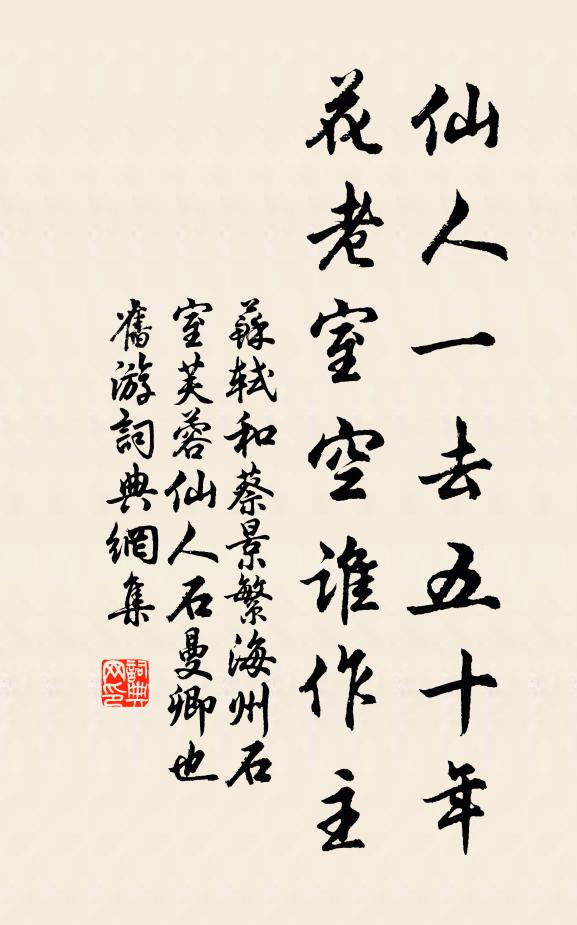 仙人一去五十年
花老室空谁作主
蘇轼和蔡景繁海州石
室芙蓉仙人石曼卿也
舊游詞典網集
詞典
网印